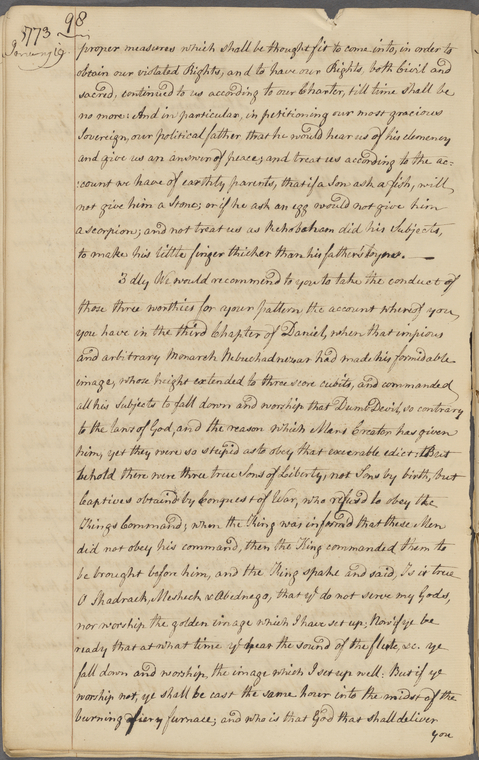 98
1773
January 19.
proper measures which shall be thought fit to come into, in order to
obtain our violated Rights, and to have our Rights, both Civil and
sacred, continued to us according to our Charter, till time shall be
no more: And in particular, in petitioning our most gracious
Sovereign, our political father that he would hear us of his clemency
and give us an answer of peace; and treat us according to the ac-
:count we have of earthly parents, that if a Son ask a fish, will
not give him a Stone; or if he ask an egg would not give him
a scorpion; and not treat us as Rehoboham did his Subjects,
to make his little finger thicker than his father's loyns.
3dly We would recommend to you to take the conduct of
those three worthies for your pattern the account whereof you
you have in the third Chapter of Daniel, when that impious
and arbitrary Monarch Nebuchadnezar had made his formidable
image, whose height extended to three score cubits, and commanded
all his Subjects to fall down and worship that Dumb Devil, so contrary
to the laws of God, and the reason which Mans Creator has given
him, yet they were so stupid as to obey that execrable edict: But
behold there were three true Sons of Liberty, not Sons by birth, but
Captives obtain'd by Conquest of War, who refus'd to obey the
Kings Command; when the King was inform'd that these Men
did not obey his command, then the King commanded them to
be brought before him, and the King spake and said, Is it true
O Shadrach, Meshech & Abednego, that ye do not serve my Gods,
nor worship the golden image which I have set up: Now if ye be
ready that at what time ye hear the sound of the flute, &c. ye
fall down and worship, the image which I set up well: But if ye
worship not, ye shall be cast the same hour into the midst of the
burning fiery furnace; and who is that God that shall deliver
you